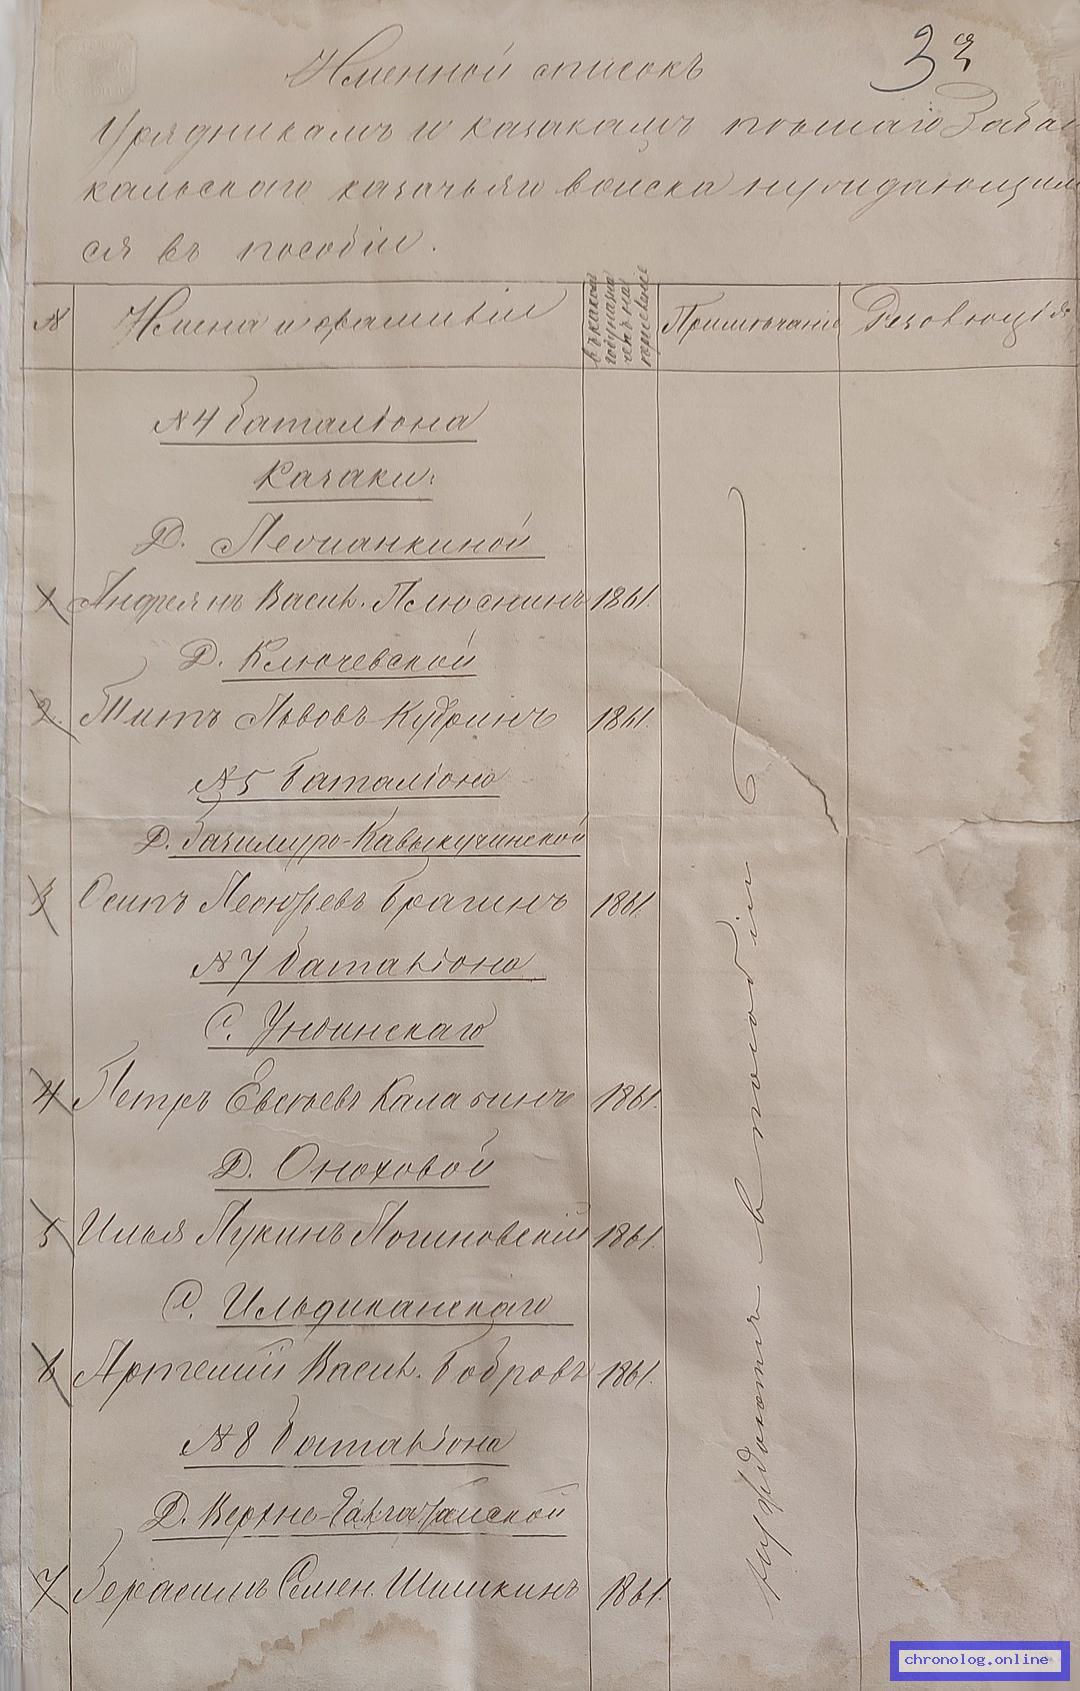 Именной списокъ
3
Урядникамъ и казакамъ пѣшаго Забай
кальскаго казачьяго войска нуждающим
ся въ пособіи.
№ Имена и фамиліи въ какомъ году назначенъ на Примѣчаніе Резолюція
№ 4 баталіона
Казаки:
Д. Лесчанкиной
1 Андреянъ Васил. Плюснинъ 1861.
Д. Ключевской
2. Титъ Львовъ Кудринъ 1861.
№ 5 баталіона
Д.
3 Осипъ Брагинъ 1861.
№ 7 баталіона
С. Ундинскаго
4 Петръ Евсѣевъ 1861.
Д. Оноховой
5 Илья Лукинъ Логиновскій 1861.
С. Ильдиканскаго
6 Артемій Васил. Бобровъ 1861.
№ 8 баталіона
Д. Верхне-
7 Герасимъ Семен. Шишкинъ 1861.
нуждаются в пособіи
chronolog.online